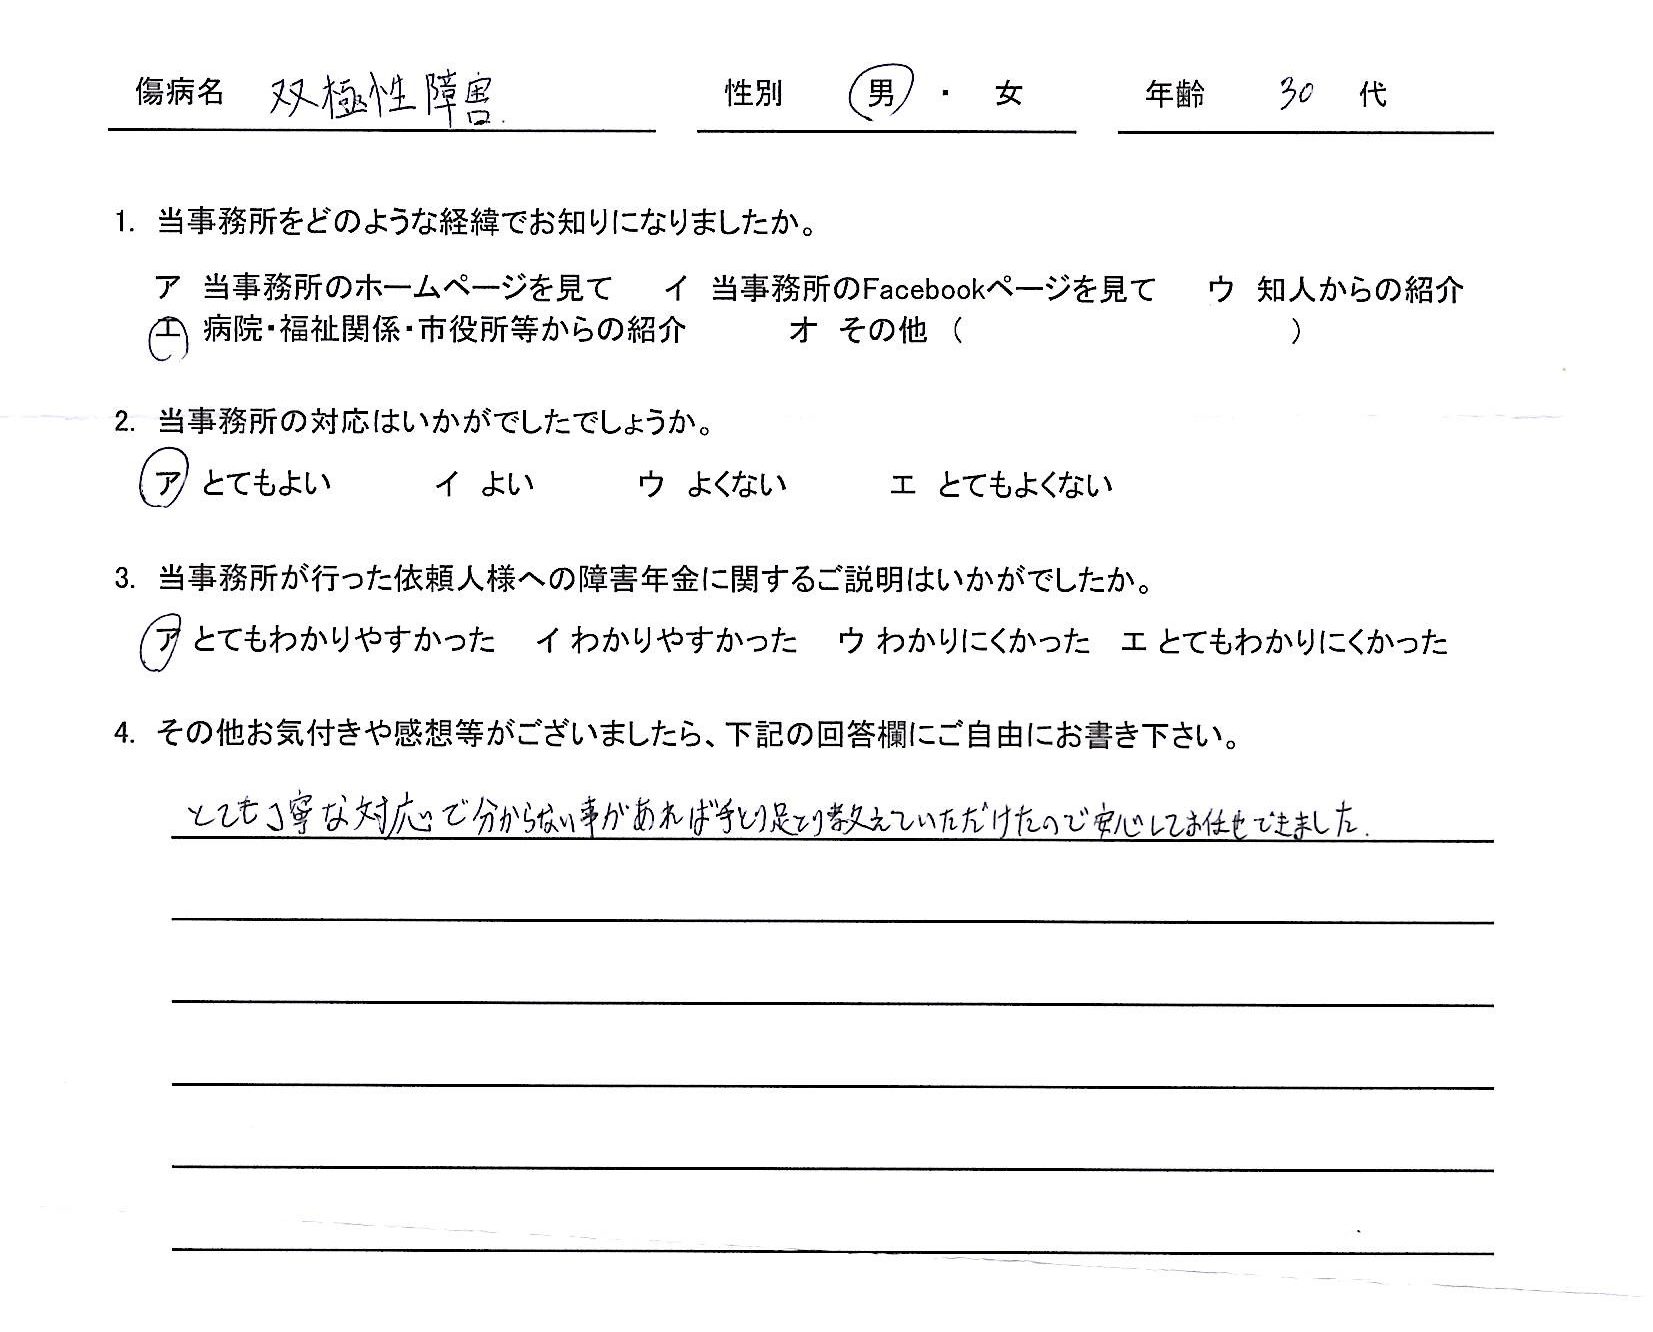 傷病名 双極性障害. 性別 男 ・ 女 年齢 30 代
1. 当事務所をどのような経緯でお知りになりましたか。
ア 当事務所のホームページを見て イ 当事務所のFacebookページを見て ウ 知人からの紹介
エ 病院・福祉関係・市役所等からの紹介 オ その他 ( )
2. 当事務所の対応はいかがでしたでしょうか。
ア とてもよい イ よい ウ よくない エ とてもよくない
3. 当事務所が行った依頼人様への障害年金に関するご説明はいかがでしたか。
ア とてもわかりやすかった イ わかりやすかった ウ わかりにくかった エ とてもわかりにくかった
4. その他お気付きや感想等がございましたら、下記の回答欄にご自由にお書き下さい。
とても丁寧な対応で分からない事があれば手とり足とり教えていただけたので安心してお任せできました.